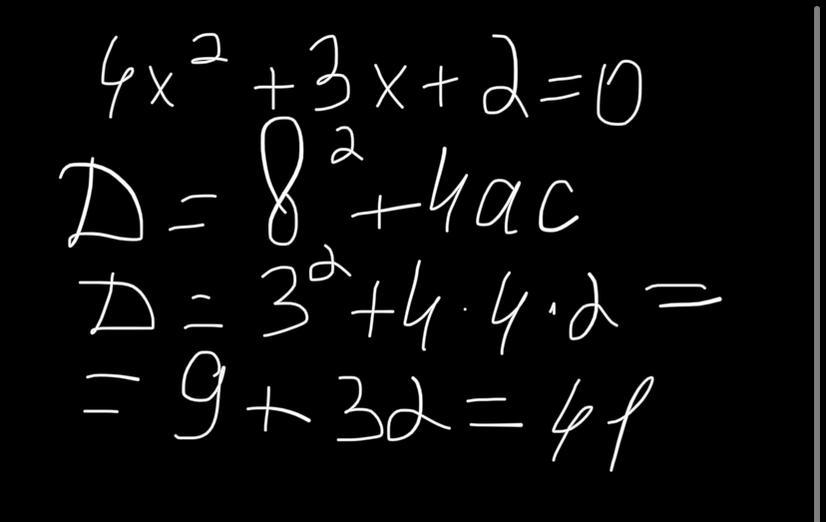 4x² + 3x + 2 = 0
D = b² + 4ac
D = 3² + 4 · 4 · 2 =
= 9 + 32 = 41